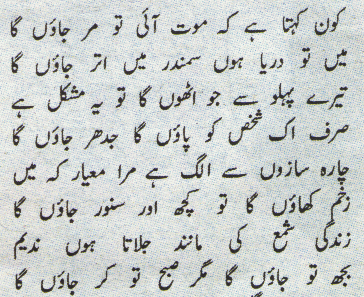 کون کہتا ہے کہ موت آئی تو مر جاؤں گا
میں تو دریا ہوں سمندر میں اتر جاؤں گا
تیرے پہلو سے جو اٹھوں گا تو یہ مشکل ہے
صرف اک شخص کو پاؤں گا جدھر جاؤں گا
چارہ سازوں سے الگ ہے مرا معیار کہ میں
زخم کھاؤں گا تو کچھ اور سنور جاؤں گا
زندگی شمع کی مانند جلاتا ہوں ندیم
بجھ تو جاؤں گا مگر صبح تو کر جاؤں گا